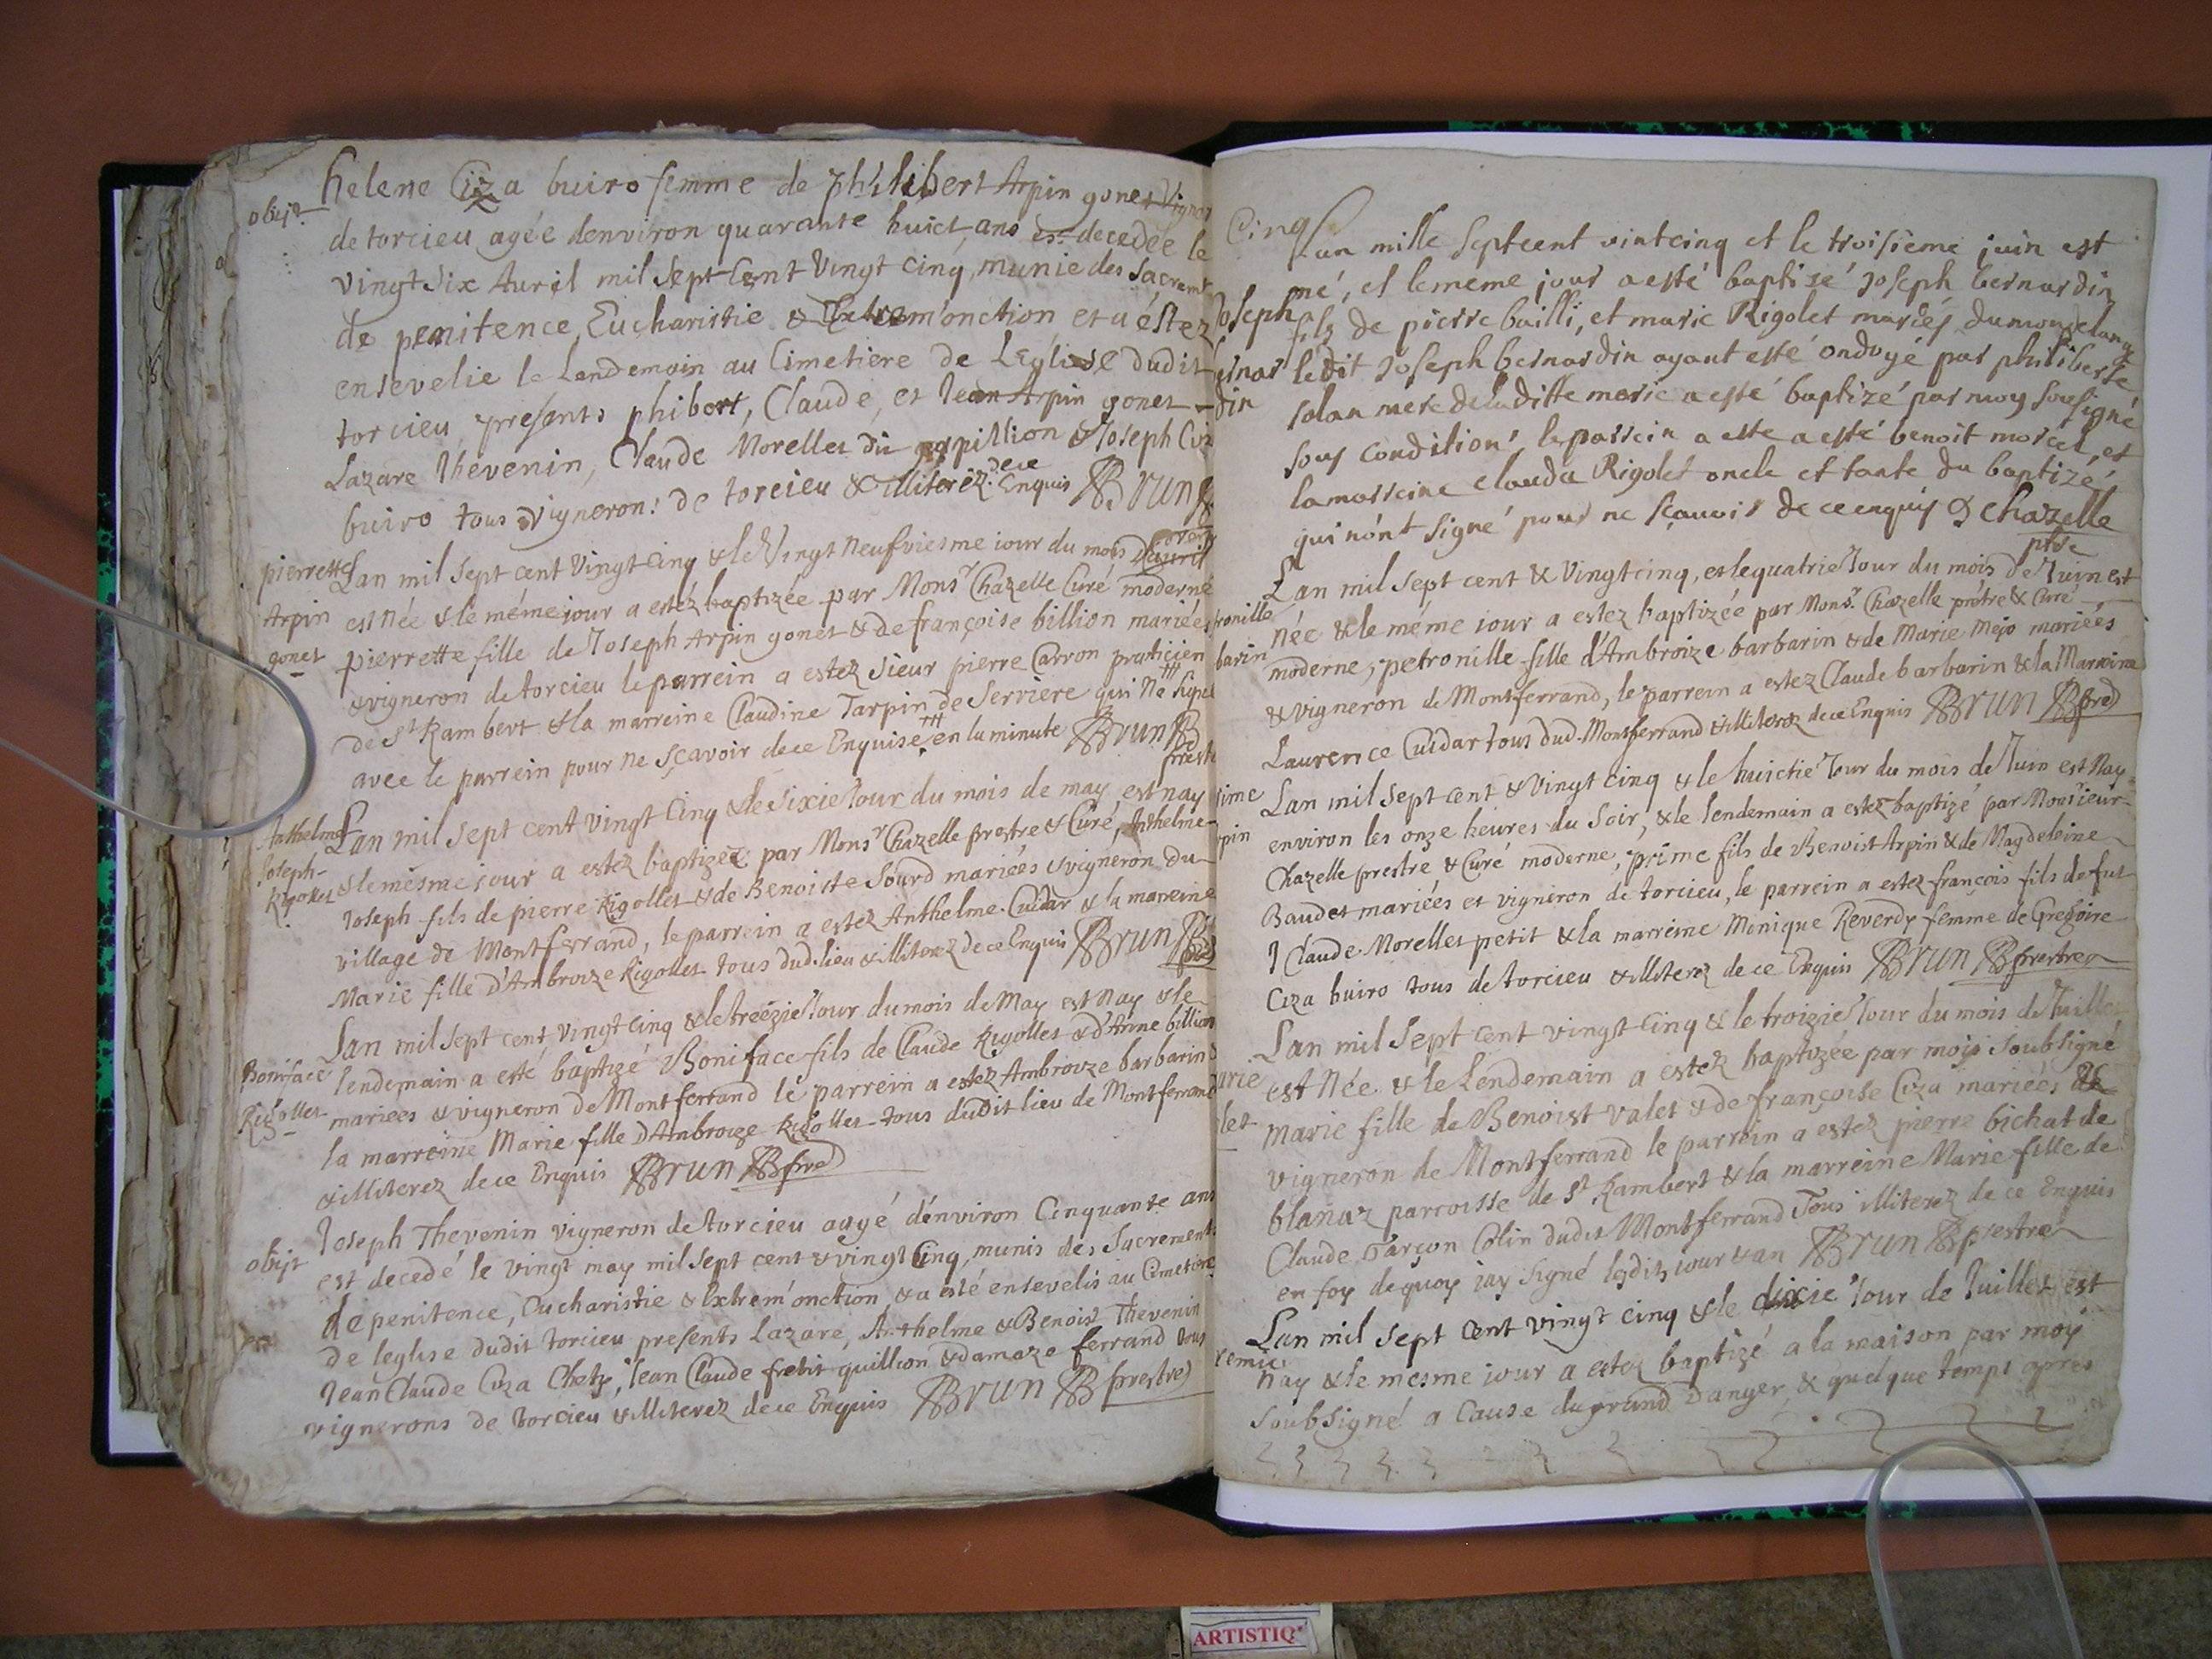 obijt
helene Ciza buiro femme de philibert Arpin gonet
de torcieu agée denviron quarante huict ans est decedée le
vingt six Auril mil sept Cent Vingt cinq, munie des Sacremt
de penitence, Eucharistie & Extrem'onction et a éstez
ensevelie le Lendemain au Cimetiere de LEglise dudit
torcieu, presents phibert, Claude, et Jean Arpin gonet
Lazare Thevenin, Claude Morellet dit papillion & Joseph Ciz
buiro tous vigneron: de torcieu & illiterez dece Enquis Brun
pierrette
Arpin
gonet
Lan mil sept cent Vingt Cinq & le Vingt Neufviesme iour du mois d'auril
est née & le méme jour a estéz baptizée par Monsr Chazelle Curé moderne
pierrette fille de Joseph Arpin gonet & de françoise billion mariées
& vigneron de torcieu le parrein a estez sieur pierre Carron praticien
de St Rambert & la marreine Claudine Tarpin de Serriere qui Na signé
avec le parrein pour ne sçavoir dece Enquise en la minute Brun
prestre
Anthelme
Joseph
Rigollet
Lan mil sept cent vingt Cinq & le sixie Iour du mois de may est nay
& le mesme jour a estez baptizée par Monsr Chazelle prestre & Curé, Anthelme
Joseph fils de pierre Rigollet & de Benoiste Sourd mariées & vigneron du
village de Montferrand, le parrein a estez Anthelme Cuidar & la marreine
Marie fille d'Ambroize Rigollet tous dud. lieu & illiterez dece Enquis Brun
Boniface
Rigollet
Lan mil sept cent vingt cinq & le treizie Iour du mois de May est Nay & le
lendemain a esté baptizé Boniface fils de Claude Rigollet & d'Anne billion
mariées & vigneron de Montferrand le parrein a estez Ambroize barbarin &
la marreine Marie fille d'Ambroize Rigollet tous dudit lieu de Montferrand
& illiterez dece Enquis Brun pre
obijt
Joseph Thevenin vigneron de torcieu aagé d'environ Cinquante ans
est decedé le vingt may mil sept cent & vingt Cinq, munis des Sacrements
de penitence, Eucharistie & Extrem'onction & a esté ensevelis au Cimetiere
de leglise dudit torcieu presents Lazare, Anthelme & Benoist Thevenin
Jean Claude Ciza Jean Claude quillion & damaze ferrand tous
vignerons de torcieu & illiterez dece Enquis Brun prestre
Cinq
Lan mille septcent vintcinq et le troisieme juin est
né, et lememe jour a esté baptizé joseph bernardin
Joseph
bernar
din
fils de pierre bailli, et marie Rigolet mariés
ledit joseph bernardin ayant esté ondoyé par philiberte
solan mere de laditte marie a esté baptizé par moy sousigné
sous condition, leparrein a este a esté benoit morcel, et
lamarreine clauda Rigolet oncle et tante du baptizé
qui nónt signé pour ne sçavoir de ce enquis chazelle
ptre
Lan mil sept cent & Vingtcinq, et le quatrie Iour du mois de Iuin est
née & le méme iour a estez baptizée par Monsr. Chazelle prétre & Curé
tronille
barin
moderne, petronille fille d'Ambroize barbarin & de Marie Mejo mariées
& vigneron de Montferrand, le parrein a estez Claude barbarin & la Marreine
Laurence Cuidar tous dud. Montferrand & illiterez dece Enquis Brun pre
rime
rpin
Lan mil sept cent & Vingt cinq & le huictie Iour du mois de Iuin est Nay
environ les onze heures du Soir, & le lendemain a estez baptizé par Monsieur
Chazelle prestre & Curé moderne, prime fils de Benoist Arpin & de Magdeleine
Baudet mariées et vigneron de torcieu, le parrein a estez françois fils de fut
Claude Morellet petit & la marreine Minique Reverdy femme de Gregoire
Ciza buiro tous de torcieu & illiterez de ce Enquis Brun prestre
Lan mil sept cent vingt Cinq & le troizie Iour du mois de Iuillet
arie
let
est Née & le Lendemain a estez baptizée par moy soubsigné
Marie fille de Benoist valet & de françoise Ciza mariées &
vigneron de Montferrand le parrein a estez pierre bichat de
blanaz parroisse de St Rambert & la marreine Marie fille de
Claude Garçon Colin dudit Montferrand Tous illiterez de ce Enquis
en foy dequoy iay signé lesdits iour & an Brun prestre
remie
Lan mil sept Cent vingt cinq & le dixie Iour de Iuillet est
nay & le mesme iour a estez baptizé a la maison par moy
soubsigné a Cause du grand danger, & quelque temps apres
ARTISTIQ